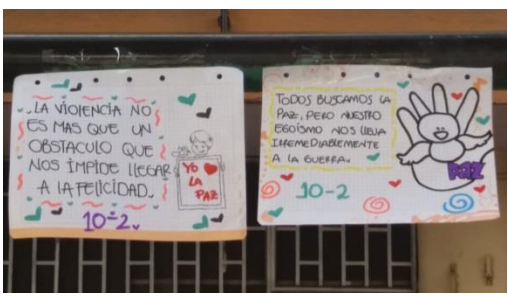 LA VIOLENCIA NO
ES MAS QUE UN
OBSTACULO QUE
NOS IMPIDE LLEGAR
A LA FELICIDAD.
YO
LA
PAZ
10-2.
TODOS BUSCAMOS LA
PAZ, PERO NUESTRO
EGOÍSMO NOS LLEVA
IRREMEDIABLEMENTE
A LA GUERRA.
10-2
PAZ